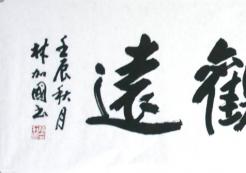 觀遠
壬辰秋月
林加國书